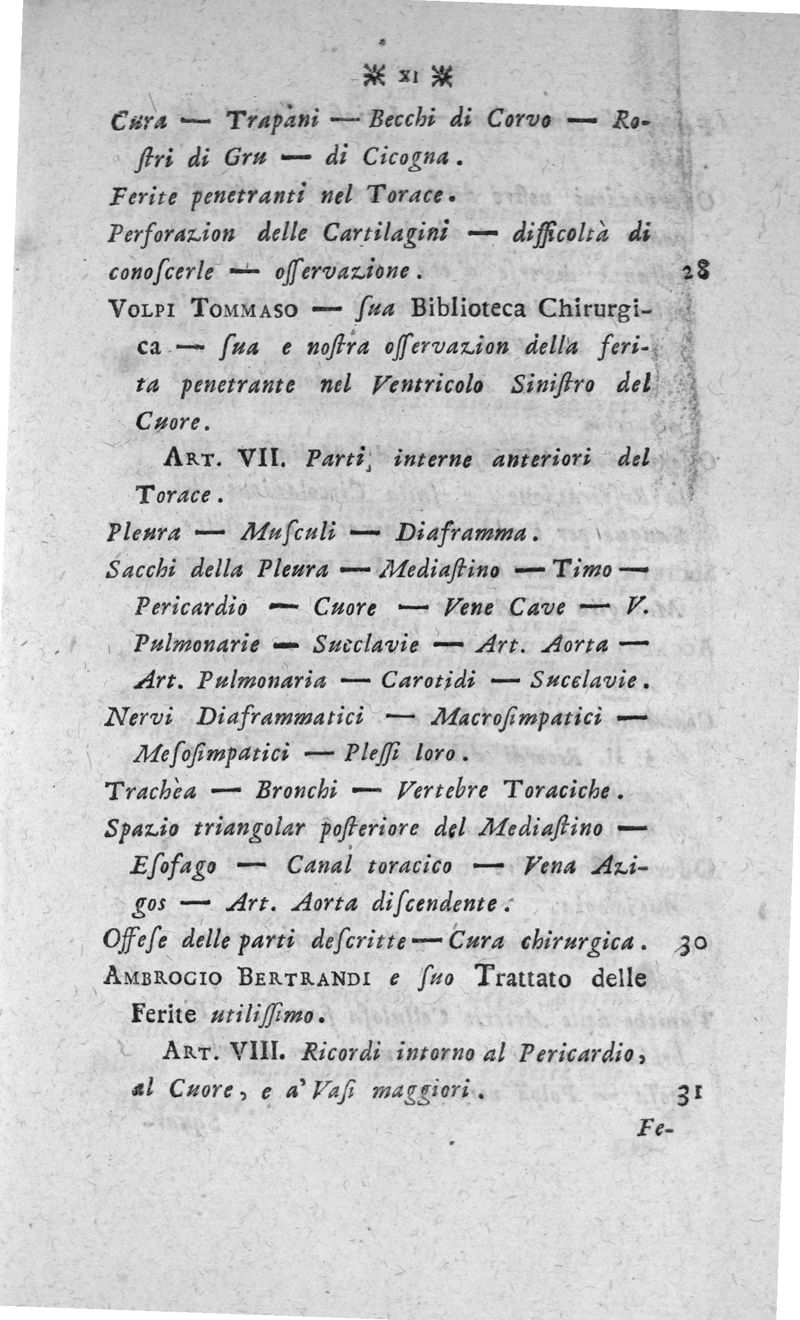 ※ XI ※
Cura — Trapani — Becchi di Corvo — Ro-
ſtri di Gru — di Cicogna.
Ferite penetranti nel Torace.
Perforazion delle Cartilagini — difficoltà di
conoſcerle — oſſervazione. 28
VOLPI TOMMASO — ſua Biblioteca Chirurgi-
ca — ſua e noſtra oſſervazion della feri-
ta penetrante nel Ventricolo Siniſtro del
Cuore.
ART. VII. Parti interne anteriori del
Torace.
Pleura — Muſculi — Diaframma.
Sacchi della Pleura — Mediaſtino — Timo —
Pericardio — Cuore — Vene Cave — V.
Pulmonarie — Succlavie — Art. Aorta —
Art. Pulmonaria — Carotidi — Succlavie.
Nervi Diaframmatici — Macroſimpatici —
Meſoſimpatici — Pleſſi loro.
Trachèa — Bronchi — Vertebre Toraciche.
Spazio triangolar poſteriore del Mediaſtino —
Eſofago — Canal toracico — Vena Azi-
gos — Art. Aorta diſcendente.
Offeſe delle parti deſcritte — Cura chirurgica. 30
AMBROGIO BERTRANDI e ſuo Trattato delle
Ferite utiliſſimo.
ART. VIII. Ricordi intorno al Pericardio,
al Cuore, e a' Vaſi maggiori. 31
Fe-